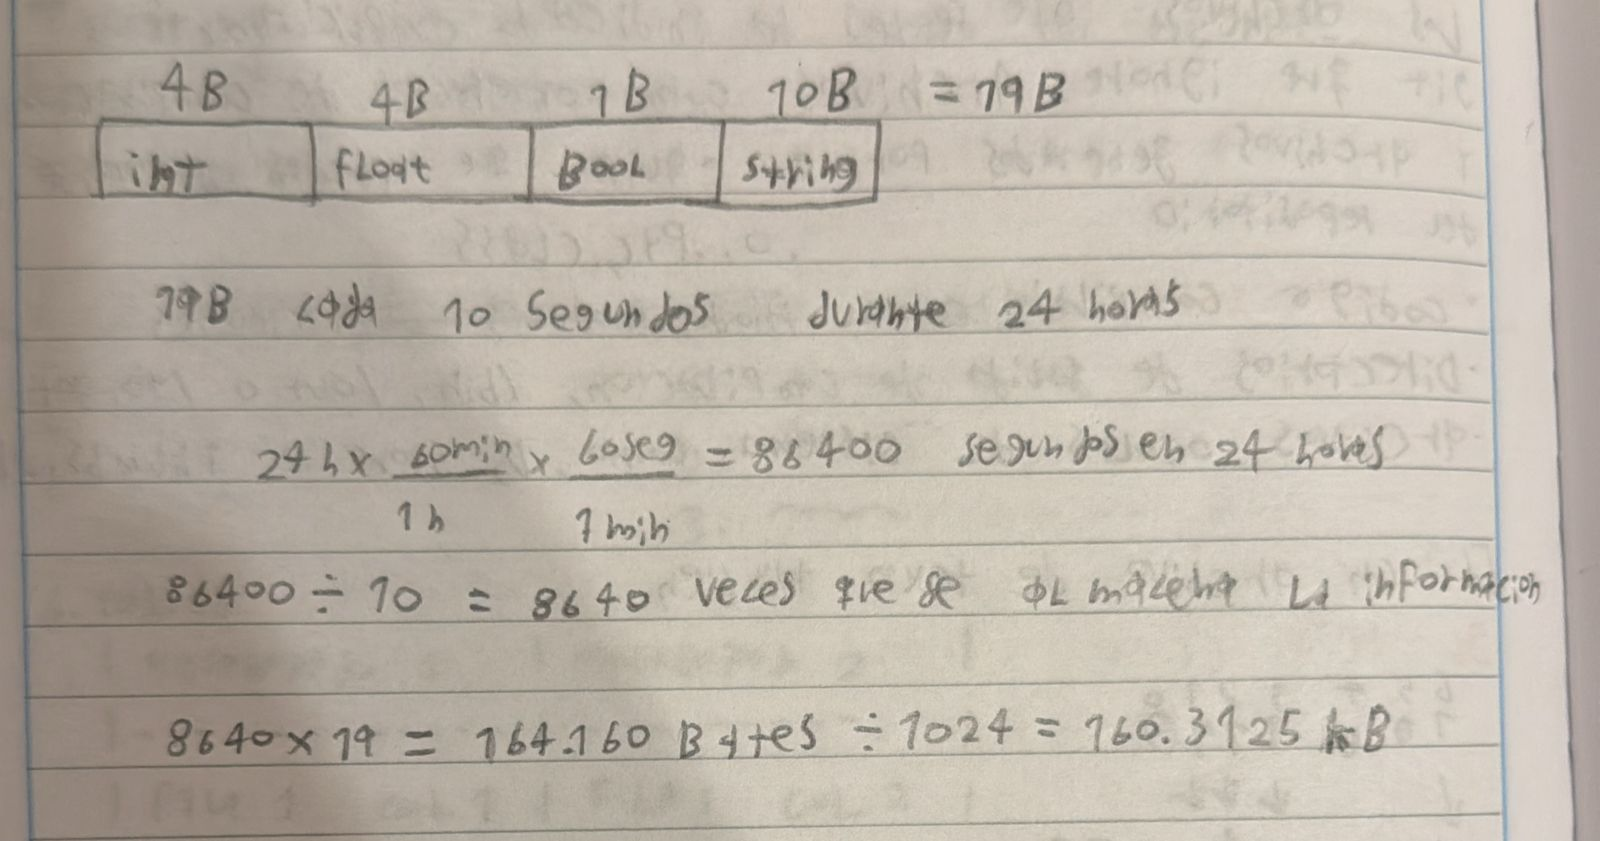 4B 4B 1B 10B = 19B
int Float BOOL string
19B cada 10 Segundos durante 24 horas
24 h x 60min/1h x 60seg/1min = 86400 segundos en 24 horas
86400 ÷ 10 = 8640 veces que se almacena La informacion
8640 x 19 = 164.160 Bytes ÷ 1024 = 160.3125 kB